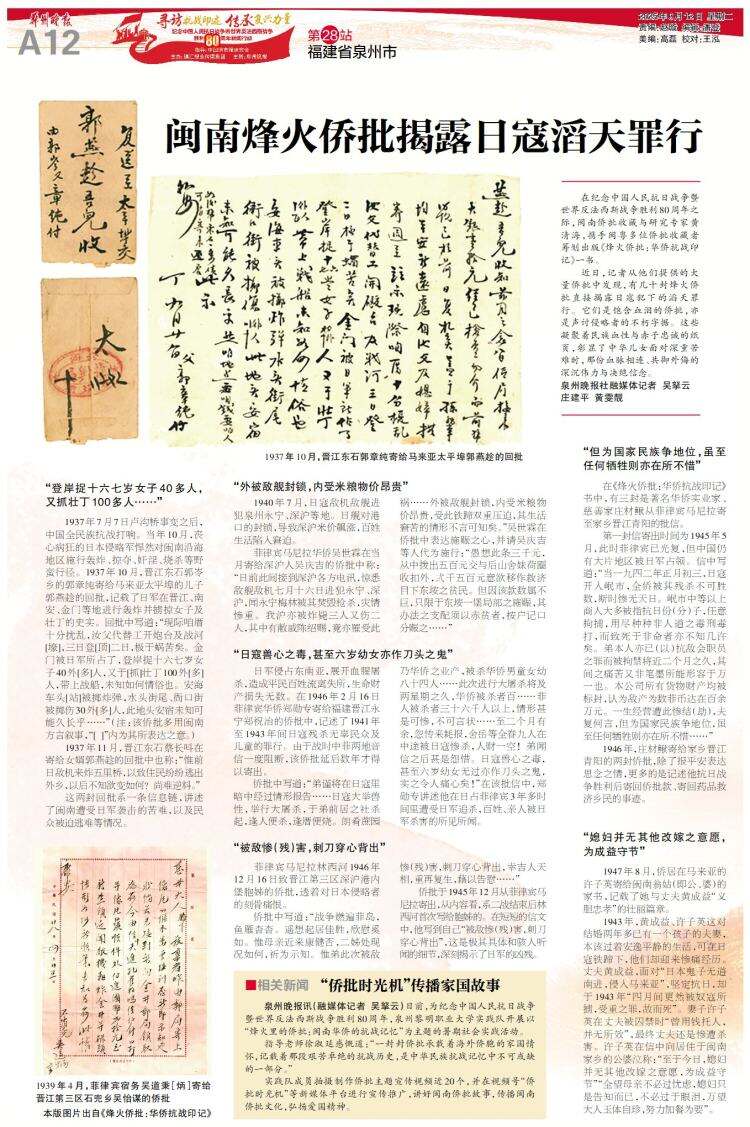 A12
寻访抗战印迹 传承复兴力量
第28站
福建省泉州市
闽南烽火侨批揭露日寇滔天罪行
在纪念中国人民抗日战争暨
世界反法西斯战争胜利80周年之
际,闽南侨批收藏与研究专家黄
清海,携手闽粤多位侨批收藏者
筹划出版《烽火侨批:华侨抗战印
记》一书。
近日,记者从他们提供的大
量侨批中发现,有几十封烽火侨
批直接揭露日寇犯下的滔天罪
行。它们是饱含血泪的侨批,亦
是声讨侵略者的不朽字据。这些
凝聚着民族血性与赤子忠诚的纸
页,彰显了中华儿女面对深重苦
难时,那份血脉相连、共御外侮的
深沉伟力与决绝信念。
泉州晚报社融媒体记者 吴拏云
庄建平 黄雯靓
1937年10月,晋江东石郭章纯寄给马来亚太平埠郭燕趁的回批
“登岸捉十六七岁女子40多人,
又抓壮丁100多人……”
1937年7月7日卢沟桥事变之后,
中国全民族抗战打响。当年10月,丧
心病狂的日本侵略军悍然对闽南沿海
地区施行轰炸、掠夺、奸淫、烧杀等野
蛮行径。1937年10月,晋江东石郭岑
乡的郭章纯寄给马来亚太平埠的儿子
郭燕趁的回批,记载了日军在晋江、南
安、金门等地进行轰炸并掳掠女子及
壮丁的史实。回批中写道:“现际咱厝
十分扰乱,汝父代替工开炮台及战河
[壕],三日登[顶]二日,极于蜗苦矣。金
门被日军所占了,登岸捉十六七岁女
子40外[多]人,又于[抓]壮丁100外[多]
人,带上战船,未知如何情俗也。安海
车头[站]被掷炸弹,水头街尾、西口街
被掷伤30外[多]人,此地头安宿未知可
能久长乎……”(注:该侨批多用闽南
方言叙事,“[ ]”内为其所表达之意。)
1937年11月,晋江东石蔡长叫在
寄给女婿郭燕趁的回批中也称:“惟前
日敌机来炸五里桥,以致住民纷纷逃出
外乡,以后不知欲变如何?尚难逆料。”
这两封回批系一条信息链,讲述
了闽南遭受日军袭击的苦难,以及民
众被迫逃难等情况。
1939年4月,菲律宾宿务吴道秉[炳]寄给
晋江第三区石兜乡吴怡谋的侨批
本版图片出自《烽火侨批:华侨抗战印记》
“外被敌舰封锁,内受米粮物价昂贵”
1940年7月,日寇敌机敌舰进
犯泉州永宁、深沪等地。日舰对港
口的封锁,导致深沪米价飙涨,百姓
生活陷入窘迫。
菲律宾马尼拉华侨吴世霖在当
月寄给深沪人吴庆吉的侨批中称:
“日前此间接到深沪各方电讯,惊悉
敌舰敌机七月十六日进犯永宁、深
沪,闻永宁梅林被其焚毁枪杀,灾情
惨重。我沪亦被炸毙三人又伤二
人,其中有敝戚陈绍鹍,竟亦罹受此
祸……外被敌舰封锁,内受米粮物
价昂贵,受此铁蹄双重压迫,其生活
窘苦的情形不言可知矣。”吴世霖在
侨批中表达施赈之心,并请吴庆吉
等人代为施行:“愚想此条三千元,
从中拨出五百元交与后山舍妹荷圈
收扣外,弍千五百元意欲移作拨济
目下东垵之贫民。但因该款数属不
巨,只限于东垵一堡局部之施赈,其
办法之支配须以赤贫者,按户记口
分赈之……”
“日寇兽心之毒,甚至六岁幼女亦作刀头之鬼”
日军侵占东南亚,展开血腥屠
杀,造成平民百姓流离失所,生命财
产损失无数。在1946年2月16日
菲律宾华侨郑勋专寄给福建晋江永
宁郑祝治的侨批中,记述了1941年
至1943年间日寇残杀无辜民众及
儿童的罪行。由于战时中菲两地音
信一度阻断,该侨批延后数年才得
以寄出。
侨批中写道:“弟谨将在日寇黑
暗中经过情形报告……日寇大举兽
性,举行大屠杀,于弟前居之社杀
起,逢人便杀,逢厝便烧。朗肴庇园
乃华侨之业产,被杀华侨男童女幼
八十四人……此次进行大屠杀将及
两星期之久,华侨被杀者百……菲
人被杀者三十六千人以上,情形甚
是可惨,不可言状……至二个月有
余,忽传来耗报,舍岳等全眷九人在
中途被日寇惨杀,人财一空!弟闻
信之后甚是怨惜。日寇兽心之毒,
甚至六岁幼女无过亦作刀头之鬼,
实之令人痛心矣!”在该批信中,郑
勋专讲述他在日占菲律宾3年多时
间里遭受日军追杀,百姓、亲人被日
军杀害的所见所闻。
“被敌惨(残)害,刺刀穿心背出”
菲律宾马尼拉林西河1946年
12月16日致晋江第三区深沪港内
堡胞姊的侨批,透着对日本侵略者
的刻骨痛恨。
侨批中写道:“战争燃遍菲岛,
鱼雁杳杳。遥想起居佳胜,欣慰奚
如。惟母亲近来康健否,二姊处现
况如何,祈为示知。惟弟此次被敌
惨(残)害,刺刀穿心背出,幸吉人天
相,重再复生,藉以告慰……”
侨批于1945年12月从菲律宾马
尼拉寄出,从内容看,系二战结束后林
西河首次写给胞姊的。在短短的信文
中,他写到自己“被敌惨(残)害,刺刀
穿心背出”,这是极其具体和骇人听
闻的细节,深刻揭示了日军的凶残。
■相关新闻 “侨批时光机”传播家国故事
泉州晚报讯(融媒体记者 吴拏云)日前,为纪念中国人民抗日战争
暨世界反法西斯战争胜利80周年,泉州黎明职业大学实践队开展以
“烽火里的侨批:闽南华侨的抗战记忆”为主题的暑期社会实践活动。
指导老师徐淑延感慨道:“一封封侨批承载着海外侨胞的家国情
怀,记载着那段艰苦卓绝的抗战历史,是中华民族抗战记忆中不可或缺
的一部分。”
实践队成员拍摄制作侨批主题宣传视频近20个,并在视频号“侨
批时光机”等新媒体平台进行宣传推广,讲好闽南侨批故事,传播闽南
侨批文化,弘扬爱国精神。
“但为国家民族争地位,虽至
任何牺牲则亦在所不惜”
在《烽火侨批:华侨抗战印记》
书中,有三封是著名华侨实业家、
慈善家庄材鳅从菲律宾马尼拉寄
至家乡晋江青阳的批信。
第一封信寄出时间为1945年5
月,此时菲律宾已光复,但中国仍
有大片地区被日军占领。信中写
道:“当一九四二年正月初三,日寇
开入岷市,全侨被其残杀不可胜
数,斯时惨无天日。岷市中等以上
商人大多被指抗日份(分)子,任意
拘捕,用尽种种非人道之毒刑毒
打,而致死于非命者亦不知几许
矣。弟本人亦已(以)抗敌会职员
之罪而被拘禁将近二个月之久,其
间之痛苦又非笔墨所能形容于万
一也。本公司所有货物财产均被
标封,认为敌产为数菲币达在百余
万元。一生经营遭此惨结(劫),夫
复何言,但为国家民族争地位,虽
至任何牺牲则亦在所不惜……”
1946年,庄材鳅寄给家乡晋江
青阳的两封侨批,除了报平安表达
思念之情,更多的是记述他抗日战
争胜利后寄回侨批款、寄回药品救
济乡民的事迹。
“媳妇并无其他改嫁之意愿,
为成益守节”
1947年8月,侨居在马来亚的
许子英寄给闽南翁姑(即公、婆)的
家书,记载了她与丈夫黄成益“义
胆忠孝”的壮丽篇章。
1943年,黄成益、许子英这对
结婚两年多已有一个孩子的夫妻,
本该过着安逸平静的生活,可在日
寇铁蹄下,他们却迎来惨痛经历。
丈夫黄成益,面对“日本鬼子无道
南进,侵入马来亚”,坚定抗日,却
于1943年“四月间更然被奴寇所
捕,受重之罪,故而死”。妻子许子
英在丈夫被囚禁时“曾用钱托人,
并无所效”,最终丈夫还是惨遭杀
害。许子英在信中向居住于闽南
家乡的公婆泣称:“至于今日,媳妇
并无其他改嫁之意愿,为成益守
节”“全望母亲不必过忧虑,媳妇只
是告知而已,不必过于眼泪,万望
大人玉体自珍,努力加餐为要”。